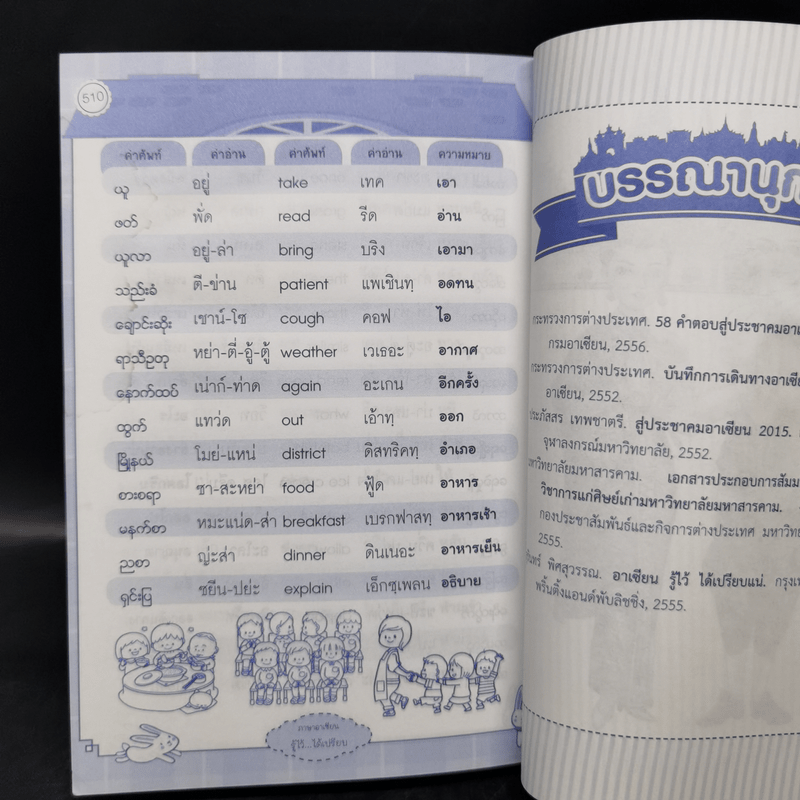 510
คำศัพท์ คำอ่าน คำศัพท์ คำอ่าน ความหมาย
ယူ อยู่ take เทค เอา
ဖတ် พั่ด read รีด อ่าน
ယူလာ อยู่-ล่า bring บริง เอามา
သည်းခံ ตี-ข่าน patient แพเชินทฺ อดทน
ချောင်းဆိုး เชาน์-โซ cough คอฟ ไอ
ရာသီဥတု หย่า-ตี่-อู้-ตู้ weather เวเธอะ อากาศ
နောက်ထပ် เน่าก์-ท่าด again อะเกน อีกครั้ง
ထွက် แทว่ด out เอ้าทฺ ออก
မြို့နယ် โมย่-แหน่ district ดิสทริคทฺ อำเภอ
စားစရာ ซา-สะหย่า food ฟู้ด อาหาร
မနက်စာ หมะแน่ด-ส่า breakfast เบรกฟาสทฺ อาหารเช้า
ညစာ ญ่ะส่า dinner ดินเนอะ อาหารเย็น
ရှင်းပြ ซยีน-ปย่ะ explain เอ็กซฺเพลน อธิบาย
ภาษาอาเซียน
รู้ไว้...ได้เปรียบ
บรรณานุก
กระทรวงการต่างประเทศ. 58 คำตอบสู่ประชาคมอาเ
กรมอาเซียน, 2556.
กระทรวงการต่างประเทศ. บันทึกการเดินทางอาเซีย
อาเซียน, 2552.
ประภัสสร เทพชาตรี. สู่ประชาคมอาเซียน 2015.
จุฬาลงกรณ์มหาวิทยาลัย, 2552.
มหาวิทยาลัยมหาสารคาม. เอกสารประกอบการสัมม
วิชาการแก่ศิษย์เก่ามหาวิทยาลัยมหาสารคาม.
กองประชาสัมพันธ์และกิจการต่างประเทศ มหาวิท
2555.
พิศสุวรรณ. อาเซียน รู้ไว้ ได้เปรียบแน่. กรุงเท
พริ้นติ้งแอนด์พับลิชชิ่ง, 2555.